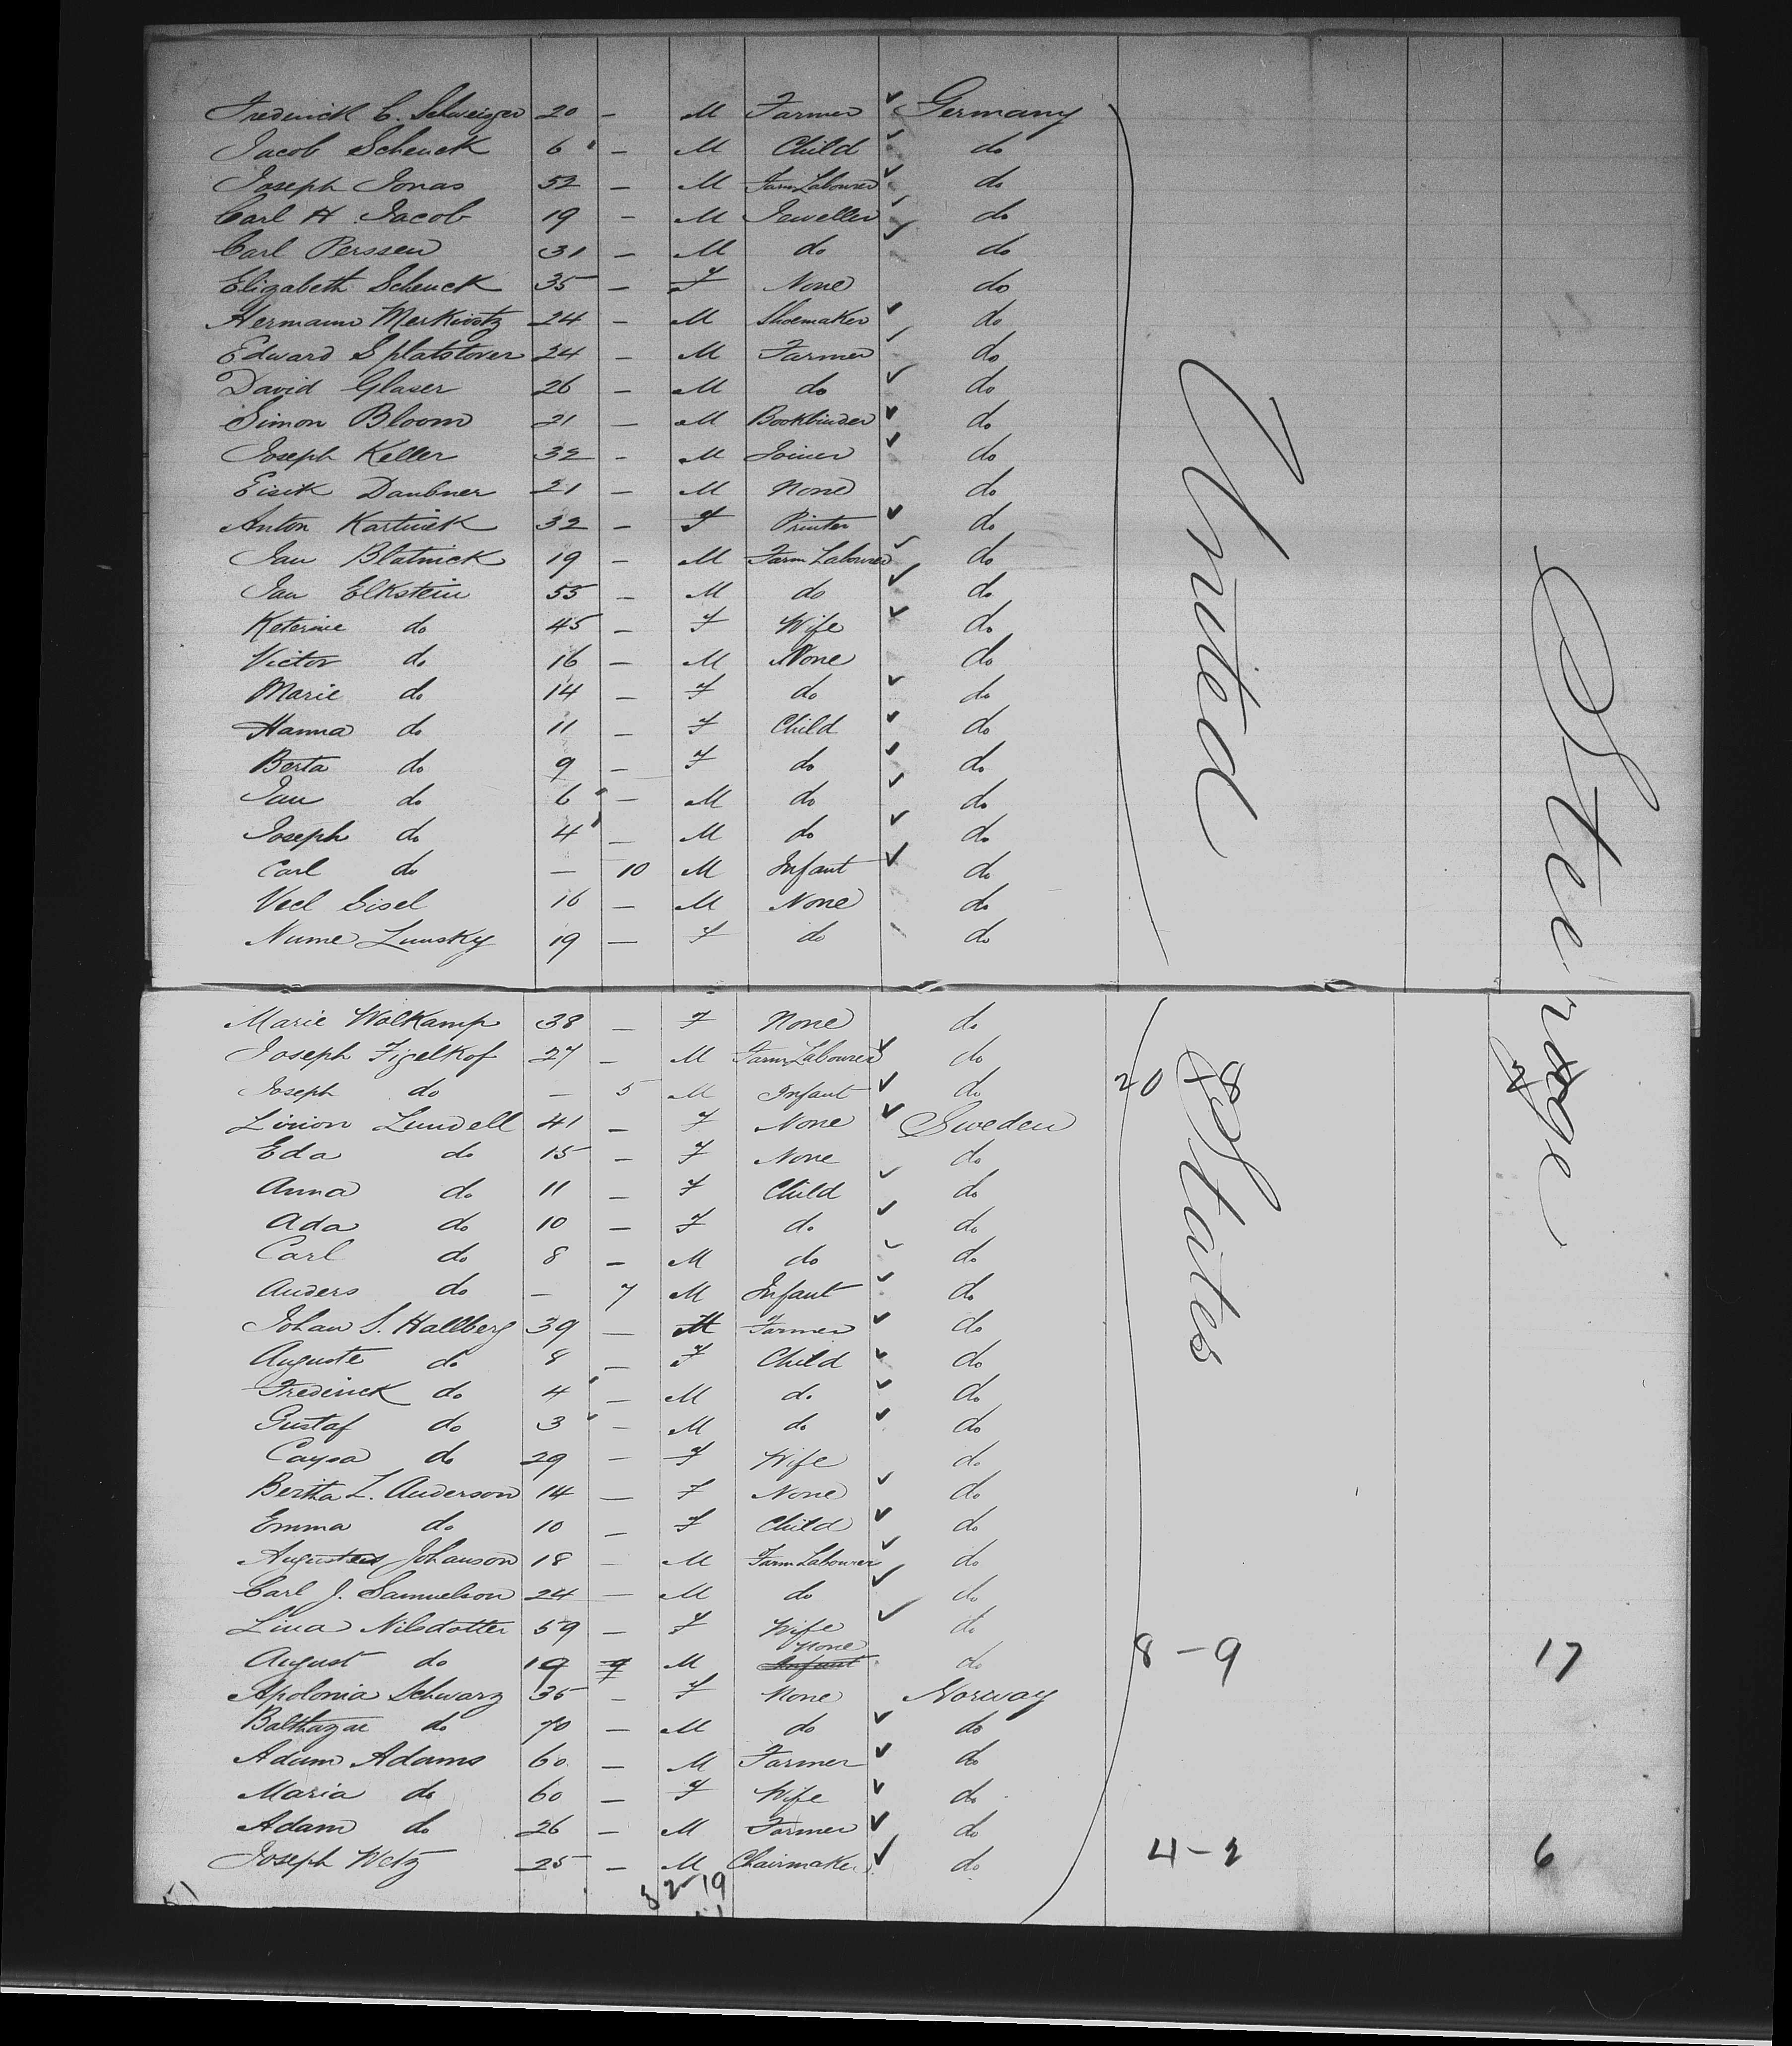 Frederick C. Schweizer 20 — M Farmer ✓ Germany
Jacob Schenck 6 — M Child ✓ do
Joseph Jonas 52 — M Farm Labourer ✓ do
Carl H. Jacob 19 — M Jeweller ✓ do
Carl Perssen 31 — M do ✓ do
Elizabeth Schenck 35 — F None do
Hermann Merkivitz 24 — M Shoemaker ✓ do
Edward Splatstover 24 — M Farmer ✓ do
David Glaser 26 — M do ✓ do
Simon Bloom 21 — M Bookbinder ✓ do
Joseph Keller 32 — M Joiner ✓ do
Eisik Daubner 21 — M None do
Anton Kartinek 32 — F Printer ✓ do
Jan Blatnick 19 — M Farm Labourer ✓ do
Jan Elkstein 55 — M do ✓ do
Keterine do 45 — F Wife ✓ do
Victor do 16 — M None do
Marie do 14 — F do ✓ do
Hanna do 11 — F Child ✓ do
Berta do 9 — F do ✓ do
Jan do 6 — M do ✓ do
Joseph do 4 — M do ✓ do
Carl do — 10 M Infant ✓ do
Vecl Sisel 16 — M None do
Nume Lunsky 19 — F do do
United
Marie Wolkamp 38 — F None do
Joseph Figelkof 27 — M Farm Labourer ✓ do
Joseph do — 5 M Infant ✓ do 20 8
Lovion Lundell 41 — F None ✓ Sweden
Eda do 15 — F None do
Anna do 11 — F Child ✓ do
Ada do 10 — F do ✓ do
Carl do 8 — M do ✓ do
Anders do — 7 M Infant ✓ do
Johan S. Hallberg 39 — M Farmer ✓ do
Auguste do 8 — F Child ✓ do
Frederick do 4 — M do ✓ do
Gustaf do 3 — M do ✓ do
Caysa do 29 — F Wife do
Bertha L. Anderson 14 — F None ✓ do
Emma do 10 — F Child ✓ do
August Johanson 18 — M Farm Labourer ✓ do
Carl J. Samuelson 24 — M do ✓ do
Lina Nilsdotter 59 — F Wife ✓ do
August do 19 M None do 8 - 9 17
Apolonia Schwarz 36 — F None Norway
Balthazar do 70 — M do ✓ do
Adam Adams 60 — M Farmer ✓ do
Maria do 60 — F Wife ✓ do
Adam do 26 — M Farmer ✓ do
Joseph Wetz 25 — M Chairmaker ✓ do 4 - 2 6
32 19
States
Steerage